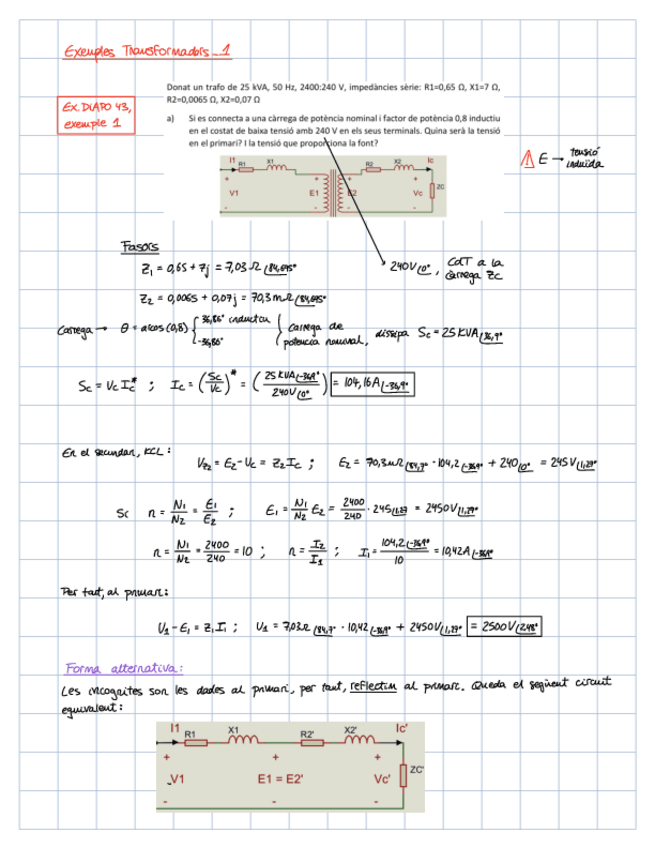 Exemples Transformadors_1
Ex. DIAPO 43,
exemple 1
Donat un trafo de 25 kVA, 50 Hz, 2400:240 V, impedàncies sèrie: R1=0,65 Ω, X1=7 Ω,
R2=0,0065 Ω, X2=0,07 Ω
a) Si es connecta a una càrrega de potència nominal i factor de potència 0,8 inductiu
en el costat de baixa tensió amb 240 V en els seus terminals. Quina serà la tensió
en el primari? I la tensió que proporciona la font?
I1 R1 X1 R2 X2 Ic
+ + + +
V1 E1 E2 Vc ZC
- - - -
⚠ E → tensió
induïda
Fasors
Z1 = 0,65 + 7j = 7,03 Ω∠84,695°
240V∠0°, CdT a la
càrrega Zc
Z2 = 0,0065 + 0,07j = 70,3 mΩ∠84,695°
Càrrega → θ = acos(0,8) { 36,86° inductiu
-36,86°
} Càrrega de
potència nominal, dissipa Sc = 25 KVA∠36,9°
Sc = Vc Ic* ; Ic = (Sc/Vc)* = (25 KVA∠-36,9° / 240V∠0°) = 104,16A∠-36,9°
En el secundari, KCL:
VZ2 = E2 - Vc = Z2 Ic ; E2 = 70,3mΩ∠84,7° · 104,2∠-36,9° + 240∠0° = 245V∠1,27°
Sc n = N1/N2 = E1/E2 ; E1 = N1/N2 E2 = 2400/240 · 245∠1,27 = 2450V∠1,27°
n = N1/N2 = 2400/240 = 10 ; n = I2/I1 ; I1 = 104,2∠-36,9° / 10 = 10,42A∠-36,9°
Per tant, al primari:
V1 - E1 = Z1 I1 ; V1 = 7,03Ω∠84,7° · 10,42∠-36,9° + 2450V∠1,27° = 2500V∠2,48°
Forma alternativa:
Les incògnites son les dades al primari, per tant, reflectim al primari. Queda el següent circuit
equivalent:
I1 R1 X1 R2' X2' Ic'
+ + +
V1 E1 = E2' Vc' ZC'
- - -